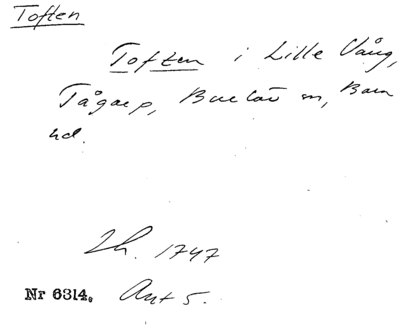 Toften
Toften i Lille Vång,
Tågarp, Burlöv sn, Bara
hd.
Lh. 1747
Nr 6314. Akt 5.